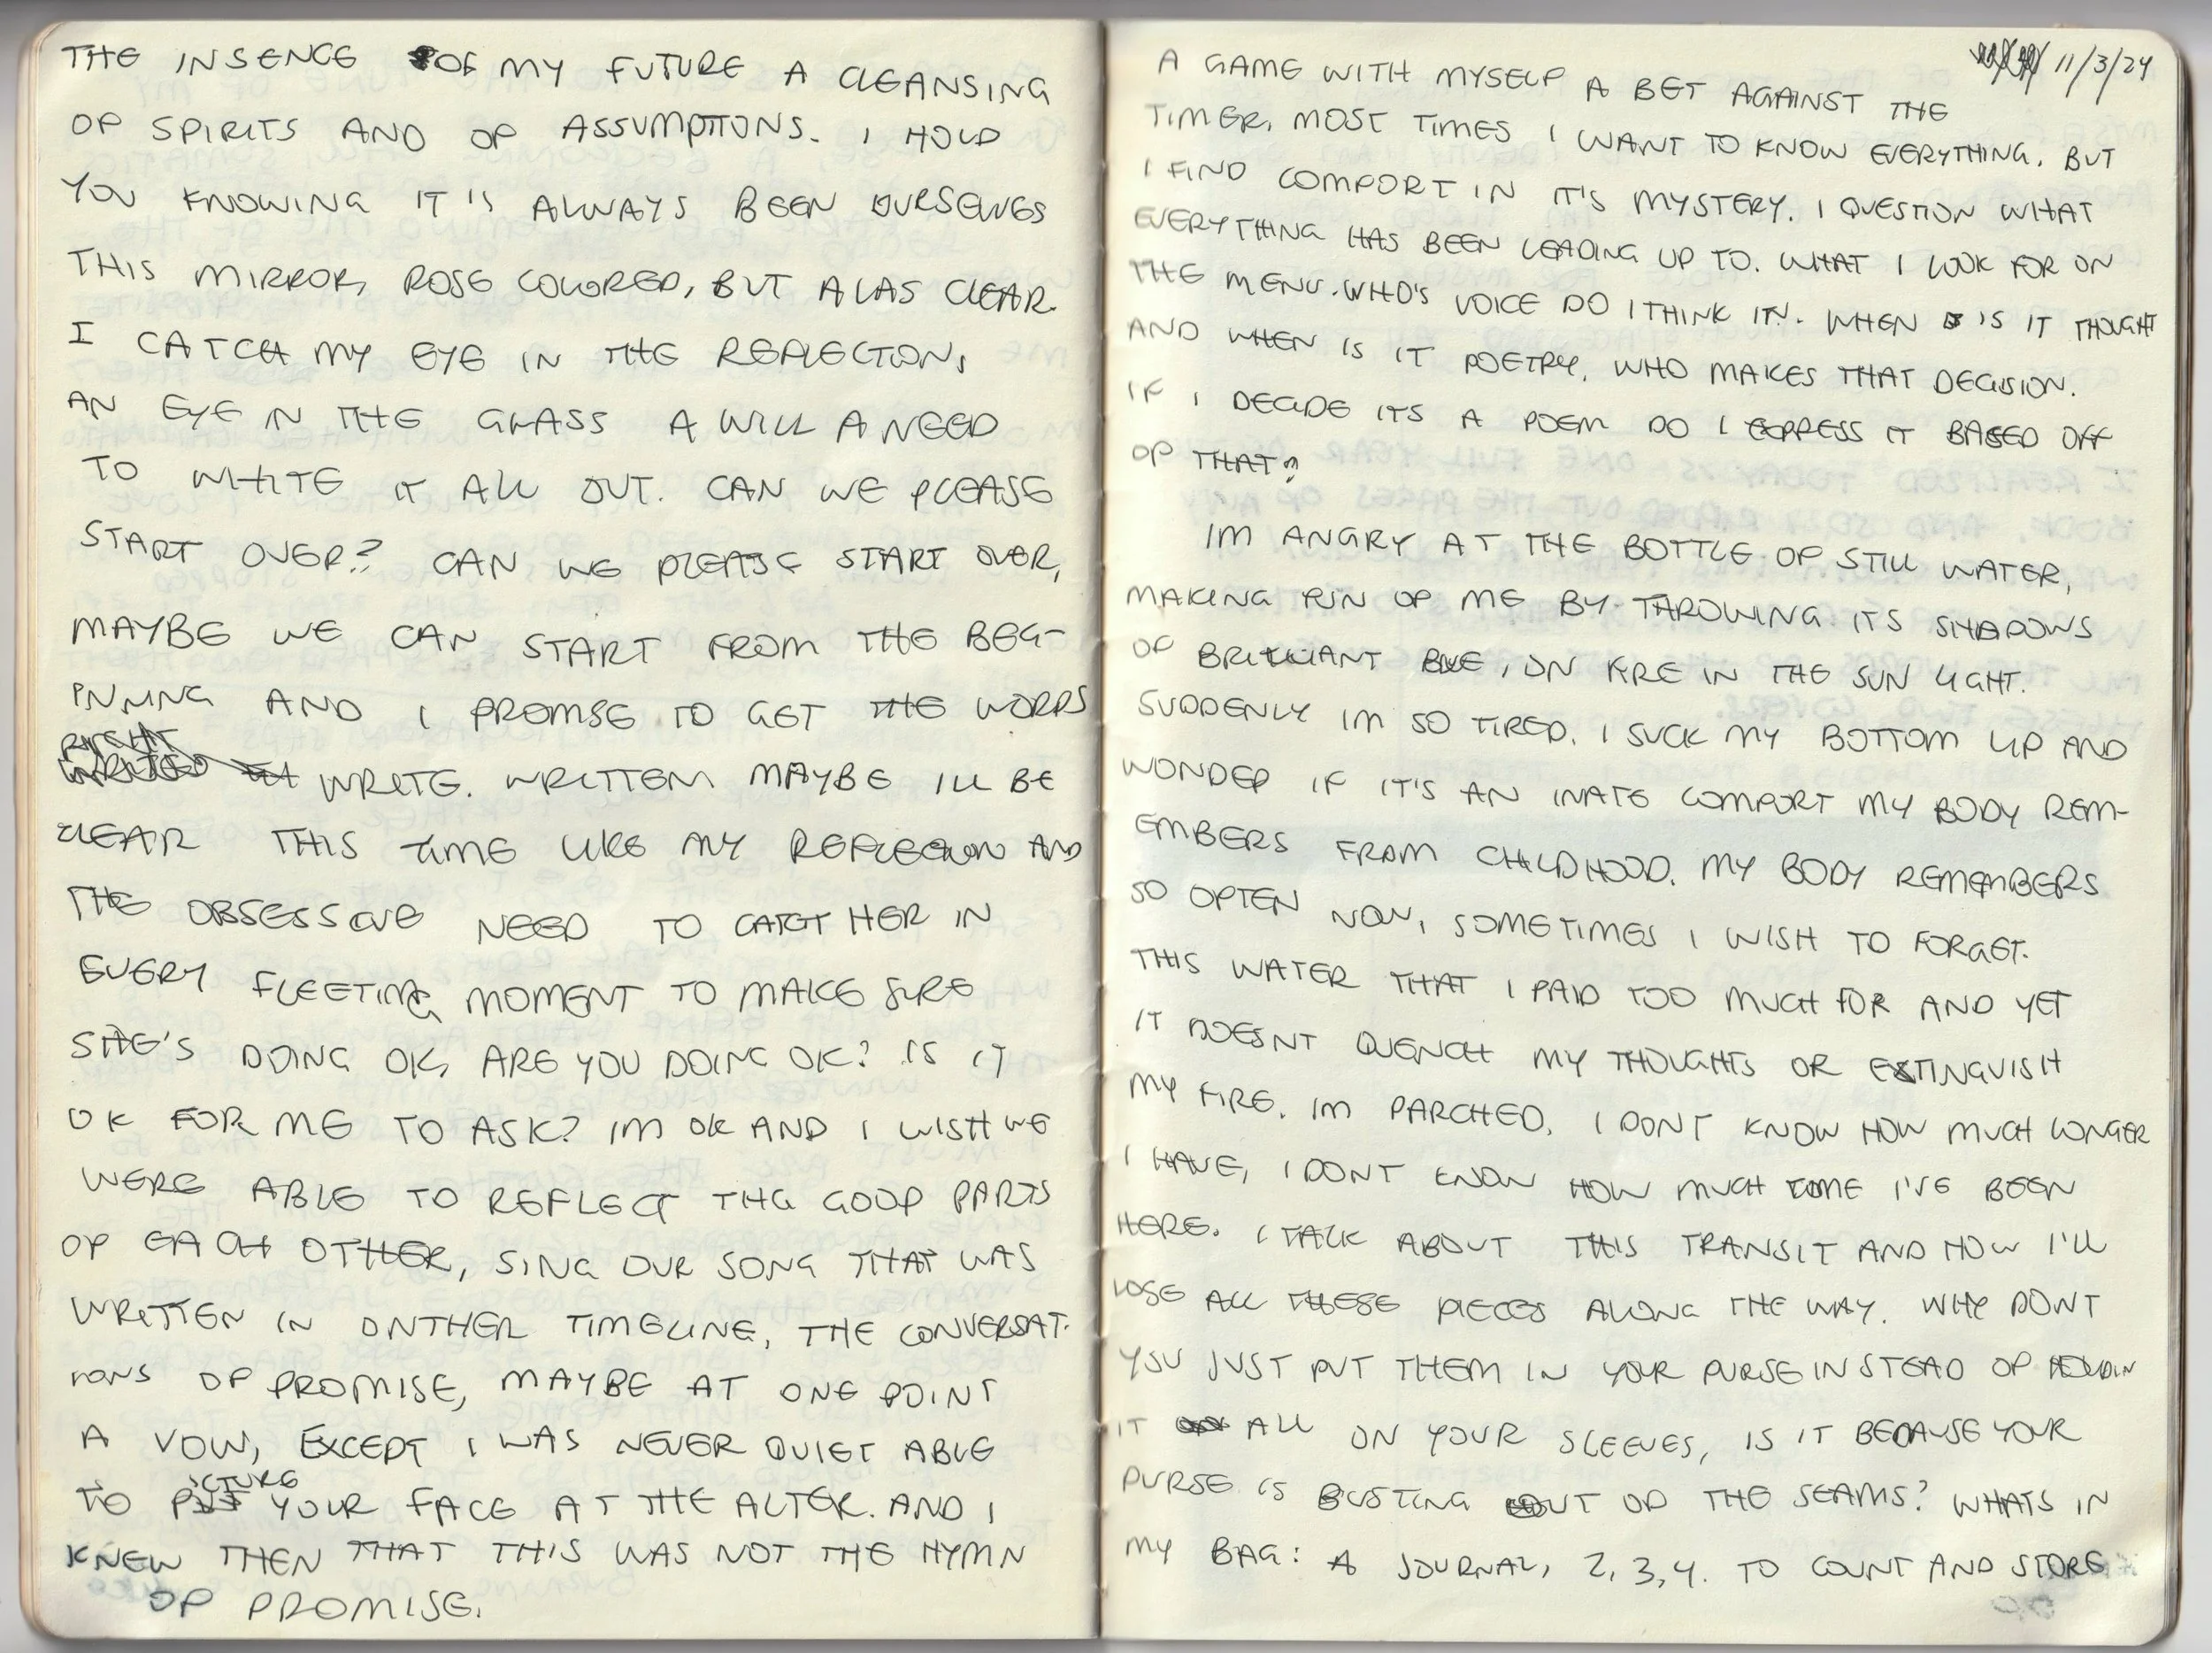 THE INSENCE OF MY FUTURE A CLEANSING
OF SPIRITS AND OF ASSUMPTIONS. I HOLD
YOU KNOWING IT'S ALWAYS BEEN OURSELVES
THIS MIRROR, ROSE COLORED, BUT ALAS CLEAR.
I CATCH MY EYE IN THE REFLECTION,
AN EYE IN THE GLASS A WILL A NEED
TO WHITE IT ALL OUT. CAN WE PLEASE
START OVER? CAN WE PLEASE START OVER,
MAYBE WE CAN START FROM THE BEG-
INNING AND I PROMISE TO GET THE WORDS
RIGHT
WRITE. WRITTEN MAYBE ILL BE
CLEAR THIS TIME LIKE MY REFLECTION AND
THE OBSESSIVE NEED TO CATCH HER IN
EVERY FLEETING MOMENT TO MAKE SURE
SHE'S DOING OK, ARE YOU DOING OK? IS IT
OK FOR ME TO ASK? IM OK AND I WISH WE
WERE ABLE TO REFLECT THE GOOD PARTS
OF EACH OTHER, SING OUR SONG THAT WAS
WRITTEN IN ONTHER TIMELINE, THE CONVERSAT-
IONS OF PROMISE, MAYBE AT ONE POINT
A VOW, EXCEPT I WAS NEVER QUIET ABLE
TO PICTURE YOUR FACE AT THE ALTER. AND I
KNEW THEN THAT THIS WAS NOT THE HYMN
OF PROMISE.
11/3/24
A GAME WITH MYSELF A BET AGAINST THE
TIMER, MOST TIMES I WANT TO KNOW EVERYTHING. BUT
I FIND COMFORT IN IT'S MYSTERY. I QUESTION WHAT
EVERYTHING HAS BEEN LEADING UP TO. WHAT I LOOK FOR ON
THE MENU. WHO'S VOICE DO I THINK IN. WHEN IS IT THOUGHT
AND WHEN IS IT POETRY, WHO MAKES THAT DECISION.
IF I DECIDE ITS A POEM DO I EXPRESS IT BASED OFF
OF THAT?
IM ANGRY AT THE BOTTLE OF STILL WATER,
MAKING FUN OF ME BY THROWING ITS SHADOWS
OF BRILLIANT BLUE, ON FIRE IN THE SUN LIGHT.
SUDDENLY IM SO TIRED. I SUCK MY BOTTOM LIP AND
WONDER IF IT'S AN INATE COMFORT MY BODY REM-
EMBERS FROM CHILDHOOD. MY BODY REMEMBERS
SO OFTEN NOW, SOMETIMES I WISH TO FORGET.
THIS WATER THAT I PAID TOO MUCH FOR AND YET
IT DOESNT QUENCH MY THOUGHTS OR EXTINGUISH
MY FIRE. IM PARCHED. I DONT KNOW HOW MUCH LONGER
I HAVE, I DONT KNOW HOW MUCH TIME I'VE BEEN
HERE. I TALK ABOUT THIS TRANSIT AND HOW I'LL
LOSE ALL THESE PIECES ALONG THE WAY. WHY DONT
YOU JUST PUT THEM IN YOUR PURSE INSTEAD OF HOLDIN
IT ALL ON YOUR SLEEVES, IS IT BECAUSE YOUR
PURSE IS BUSTING OUT OF THE SEAMS? WHATS IN
MY BAG: A JOURNAL, 2, 3, 4. TO COUNT AND STORE